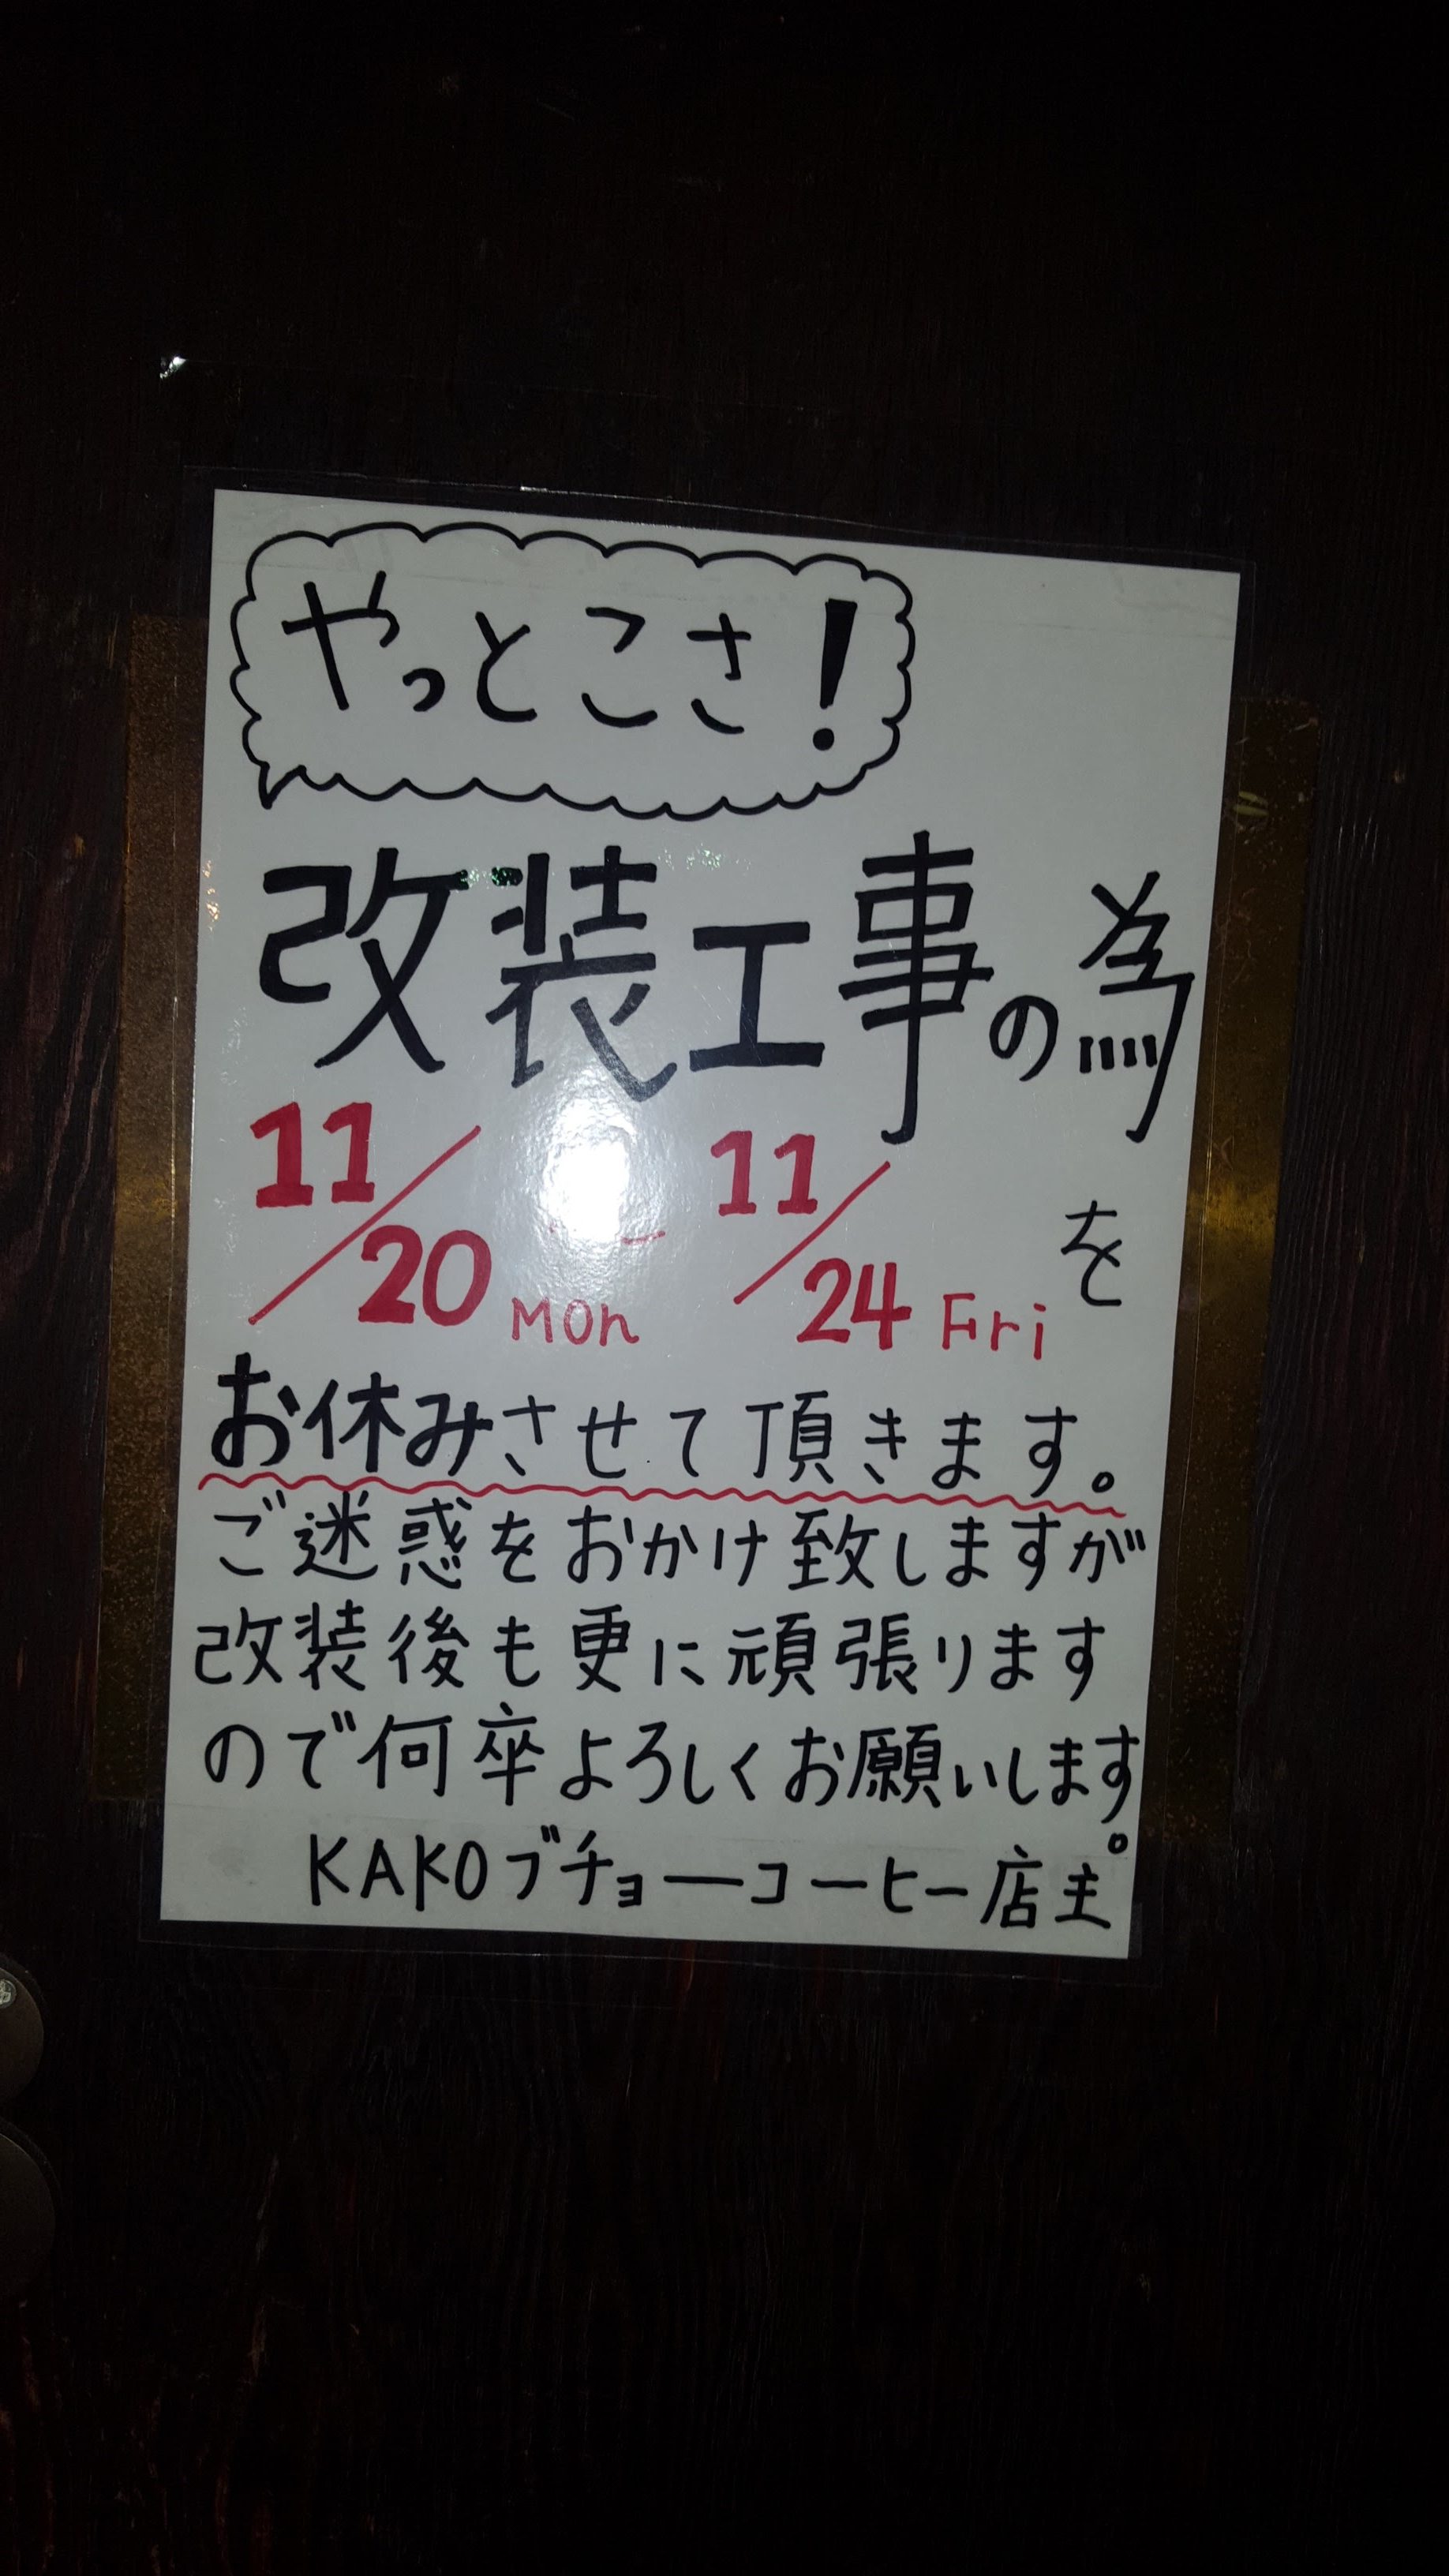 やっとこさ!
改装工事の為
11/20 Mon 〜 11/24 Fri を
お休みさせて頂きます。
ご迷惑をおかけ致しますが
改装後も更に頑張ります
ので何卒よろしくお願いします。
KAKOブチョーコーヒー店主